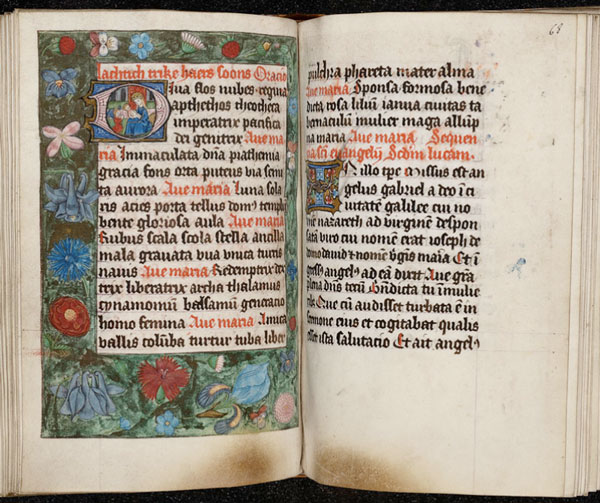 lachtich trike haers soons Oracio
Diua flos nubes regina
apthethos theotheca
imperatrix pacifica
dei genitrix Aue ma
ria Immaculata dña piathemia
gracia fons orta puteus via semi
ta aurora Aue maria Luna sola
ris acies porta tellus domꝰ templū
bente gloriosa aula Aue maria
Rubus scala scola stella ancilla
mala grauata vua vnita turris
nauis Aue maria Redemptrix do
trix liberatrix archa thalamus
cynamomū balsamū generacio
homo femina Aue maria Amica
vallis colūba turtur tuba liber
68
pulchra pharetra mater alma
Aue maria Sponsa formosa bene
dicta rosa liliū ianua ciuitas ta
bernaculū mulier maga assūp
tia maria Aue maria Sequen
tia scī euangelij Scdm lucam.
In illo tpe missus est an
gelus gabriel a deo ī ci
uitatē galilee cui no
mē nazareth ad virginē despon
satā viro cui nomē erat ioseph de
domo dauid et nomē vgīs maia Et ī
gressꝰ angelꝰ ad eā dixit Aue grā
plena dns tecū bndicta tu ī mulie
ribꝰ Que cū audisset turbata ē in
sermone eius et cogitabat qualis
esset ista salutacio Et ait angelꝰ